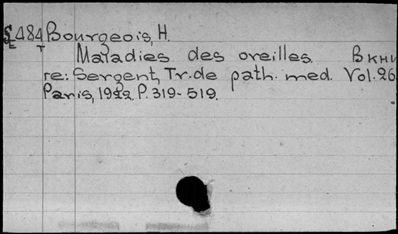 S484 Bourgeois, H.
E T Maladies des oreilles. В кни
re: Sergent, Tr. de path. med. Vol. 26
Paris, 1922. P. 319-519.